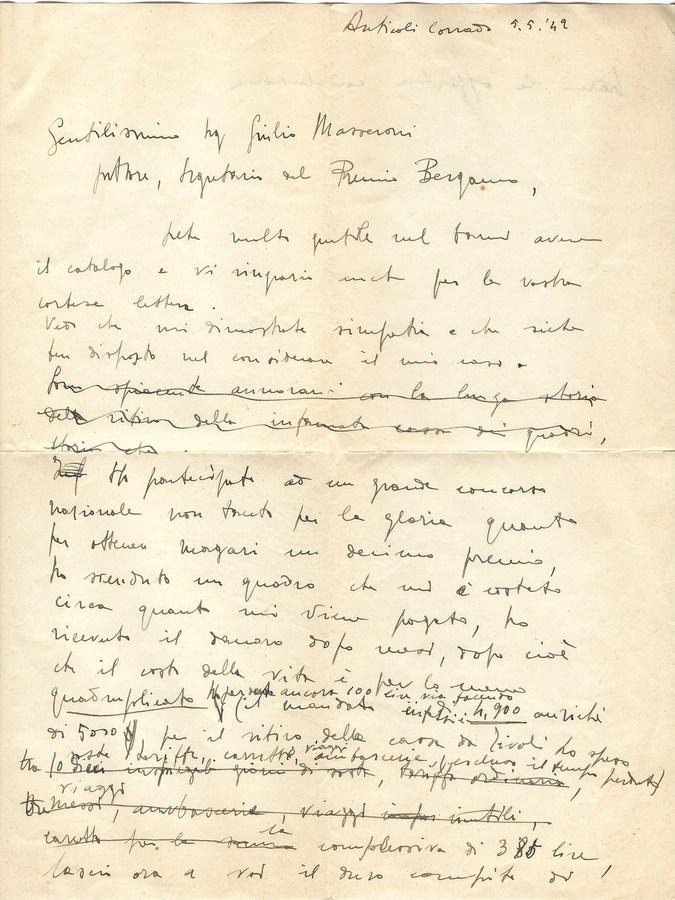 Anticoli Corrado 5.5.'42
Gentilissimo Sig Giulio Masseroni
pittore, Segretario del Premio Bergamo,
siete molto gentile nel farmi avere
il catalogo e vi ringrazio anche per la vostra
cortese lettera.
Vedo che mi dimostrate simpatia e che siete
ben disposto nel considerare il mio caso.
Sono spiacente annoiarvi con la lunga storia
della ritiro della infornata cassa dei quadri,
storia che
Ho partecipato ad un grande concorso
nazionale non tanto per la gloria quanto
per ottenere magari un decimo premio,
ho venduto un quadro che mi è costato
circa quanto mi viene pagato, ho
ricevuto il denaro dopo mesi, dopo cioè
che il costo della vita è per lo meno
quadruplicato Ho perduto ancora 100 lire via facendo
(il mandato era di 4,900 anziché
di 5000), per il ritiro della cassa da Tivoli ho speso
soste, tariffe, carretto, viaggi ambascerie, (escluso il tempo perduto)
tra 10 dieci giorni di sosta, tariffa ordinaria,
viaggi
messi, ambascerie, viaggi inutili,
carretto per la la complessiva di 385 lire,
lascio ora a voi il duro compito di